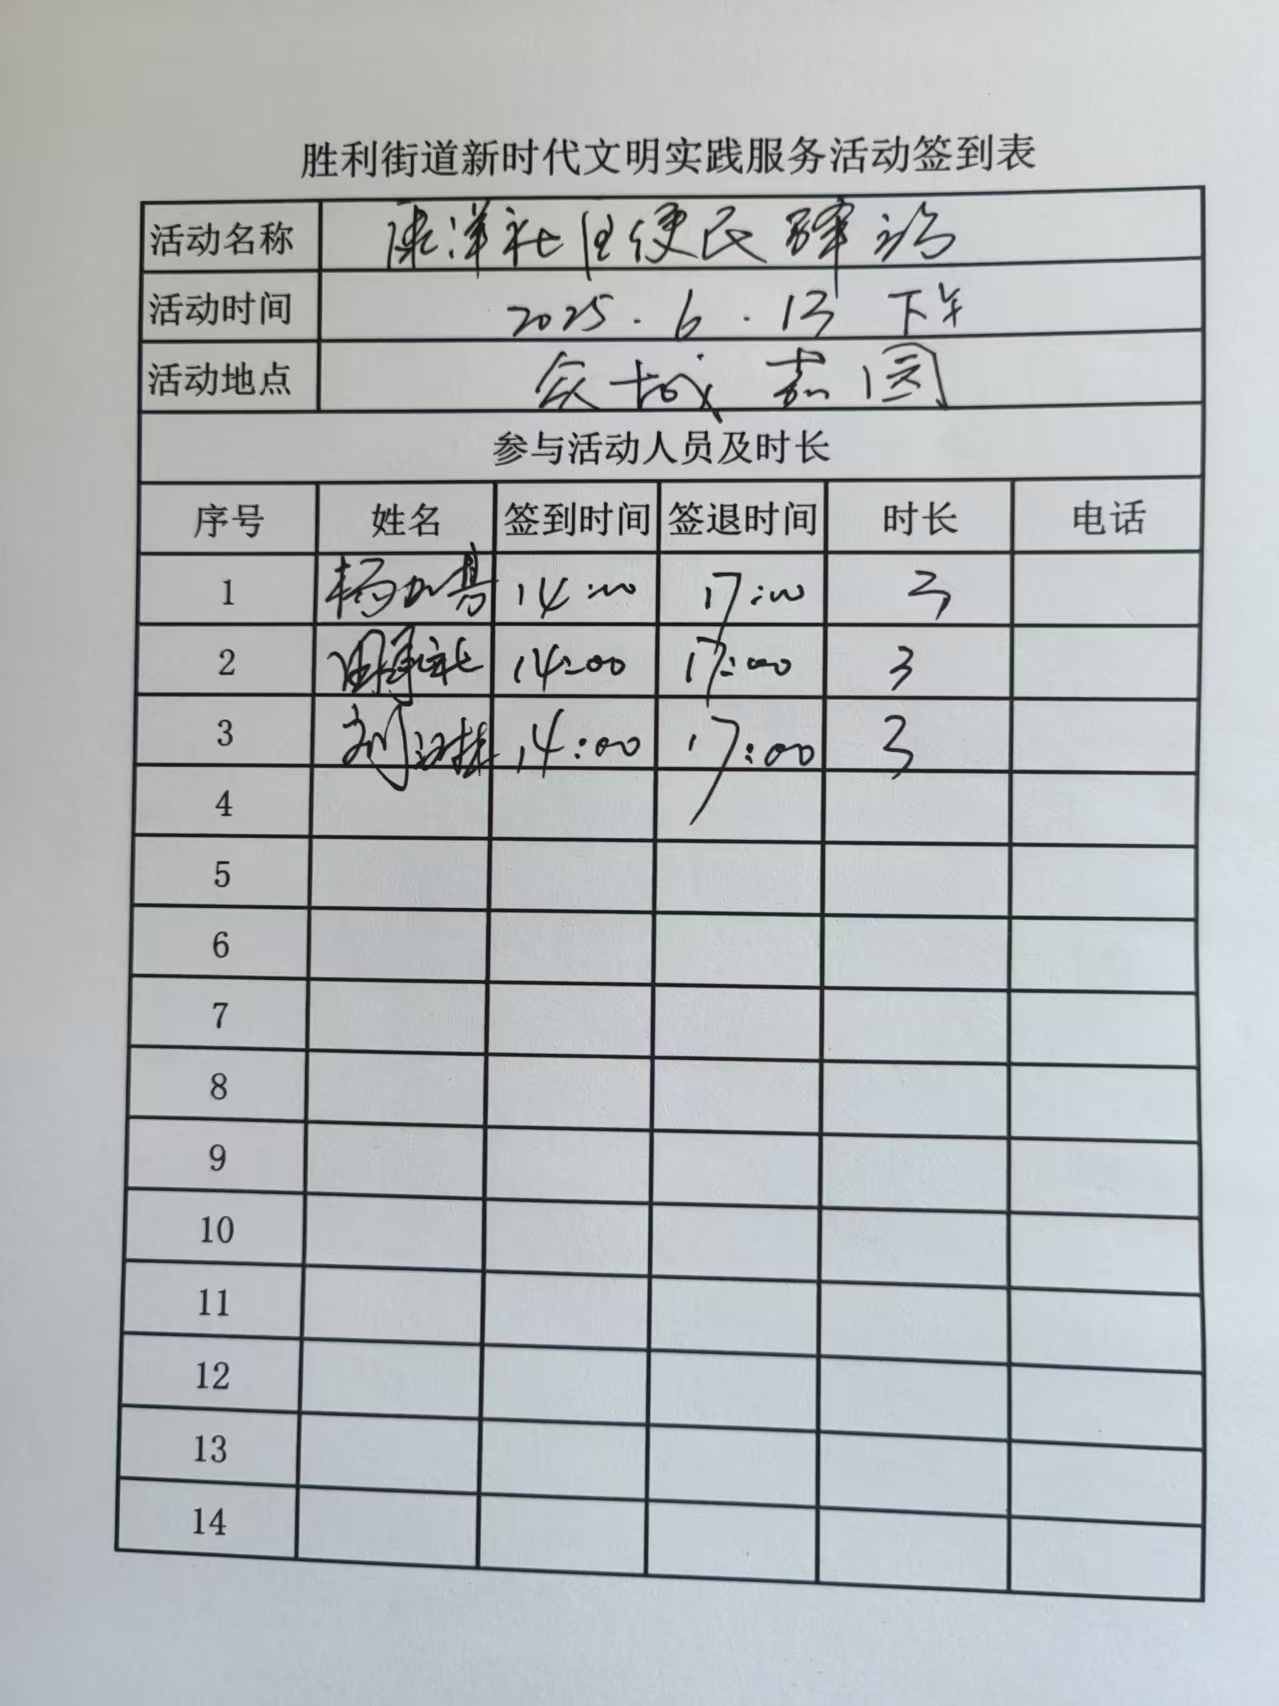 胜利街道新时代文明实践服务活动签到表
活动名称 康洋社区便民驿站
活动时间 2025.6.13 下午
活动地点 众城嘉园
参与活动人员及时长
序号 姓名 签到时间 签退时间 时长 电话
1 杨 14:00 17:00 3
2 14:00 17:00 3
3 刘 14:00 17:00 3
4
5
6
7
8
9
10
11
12
13
14